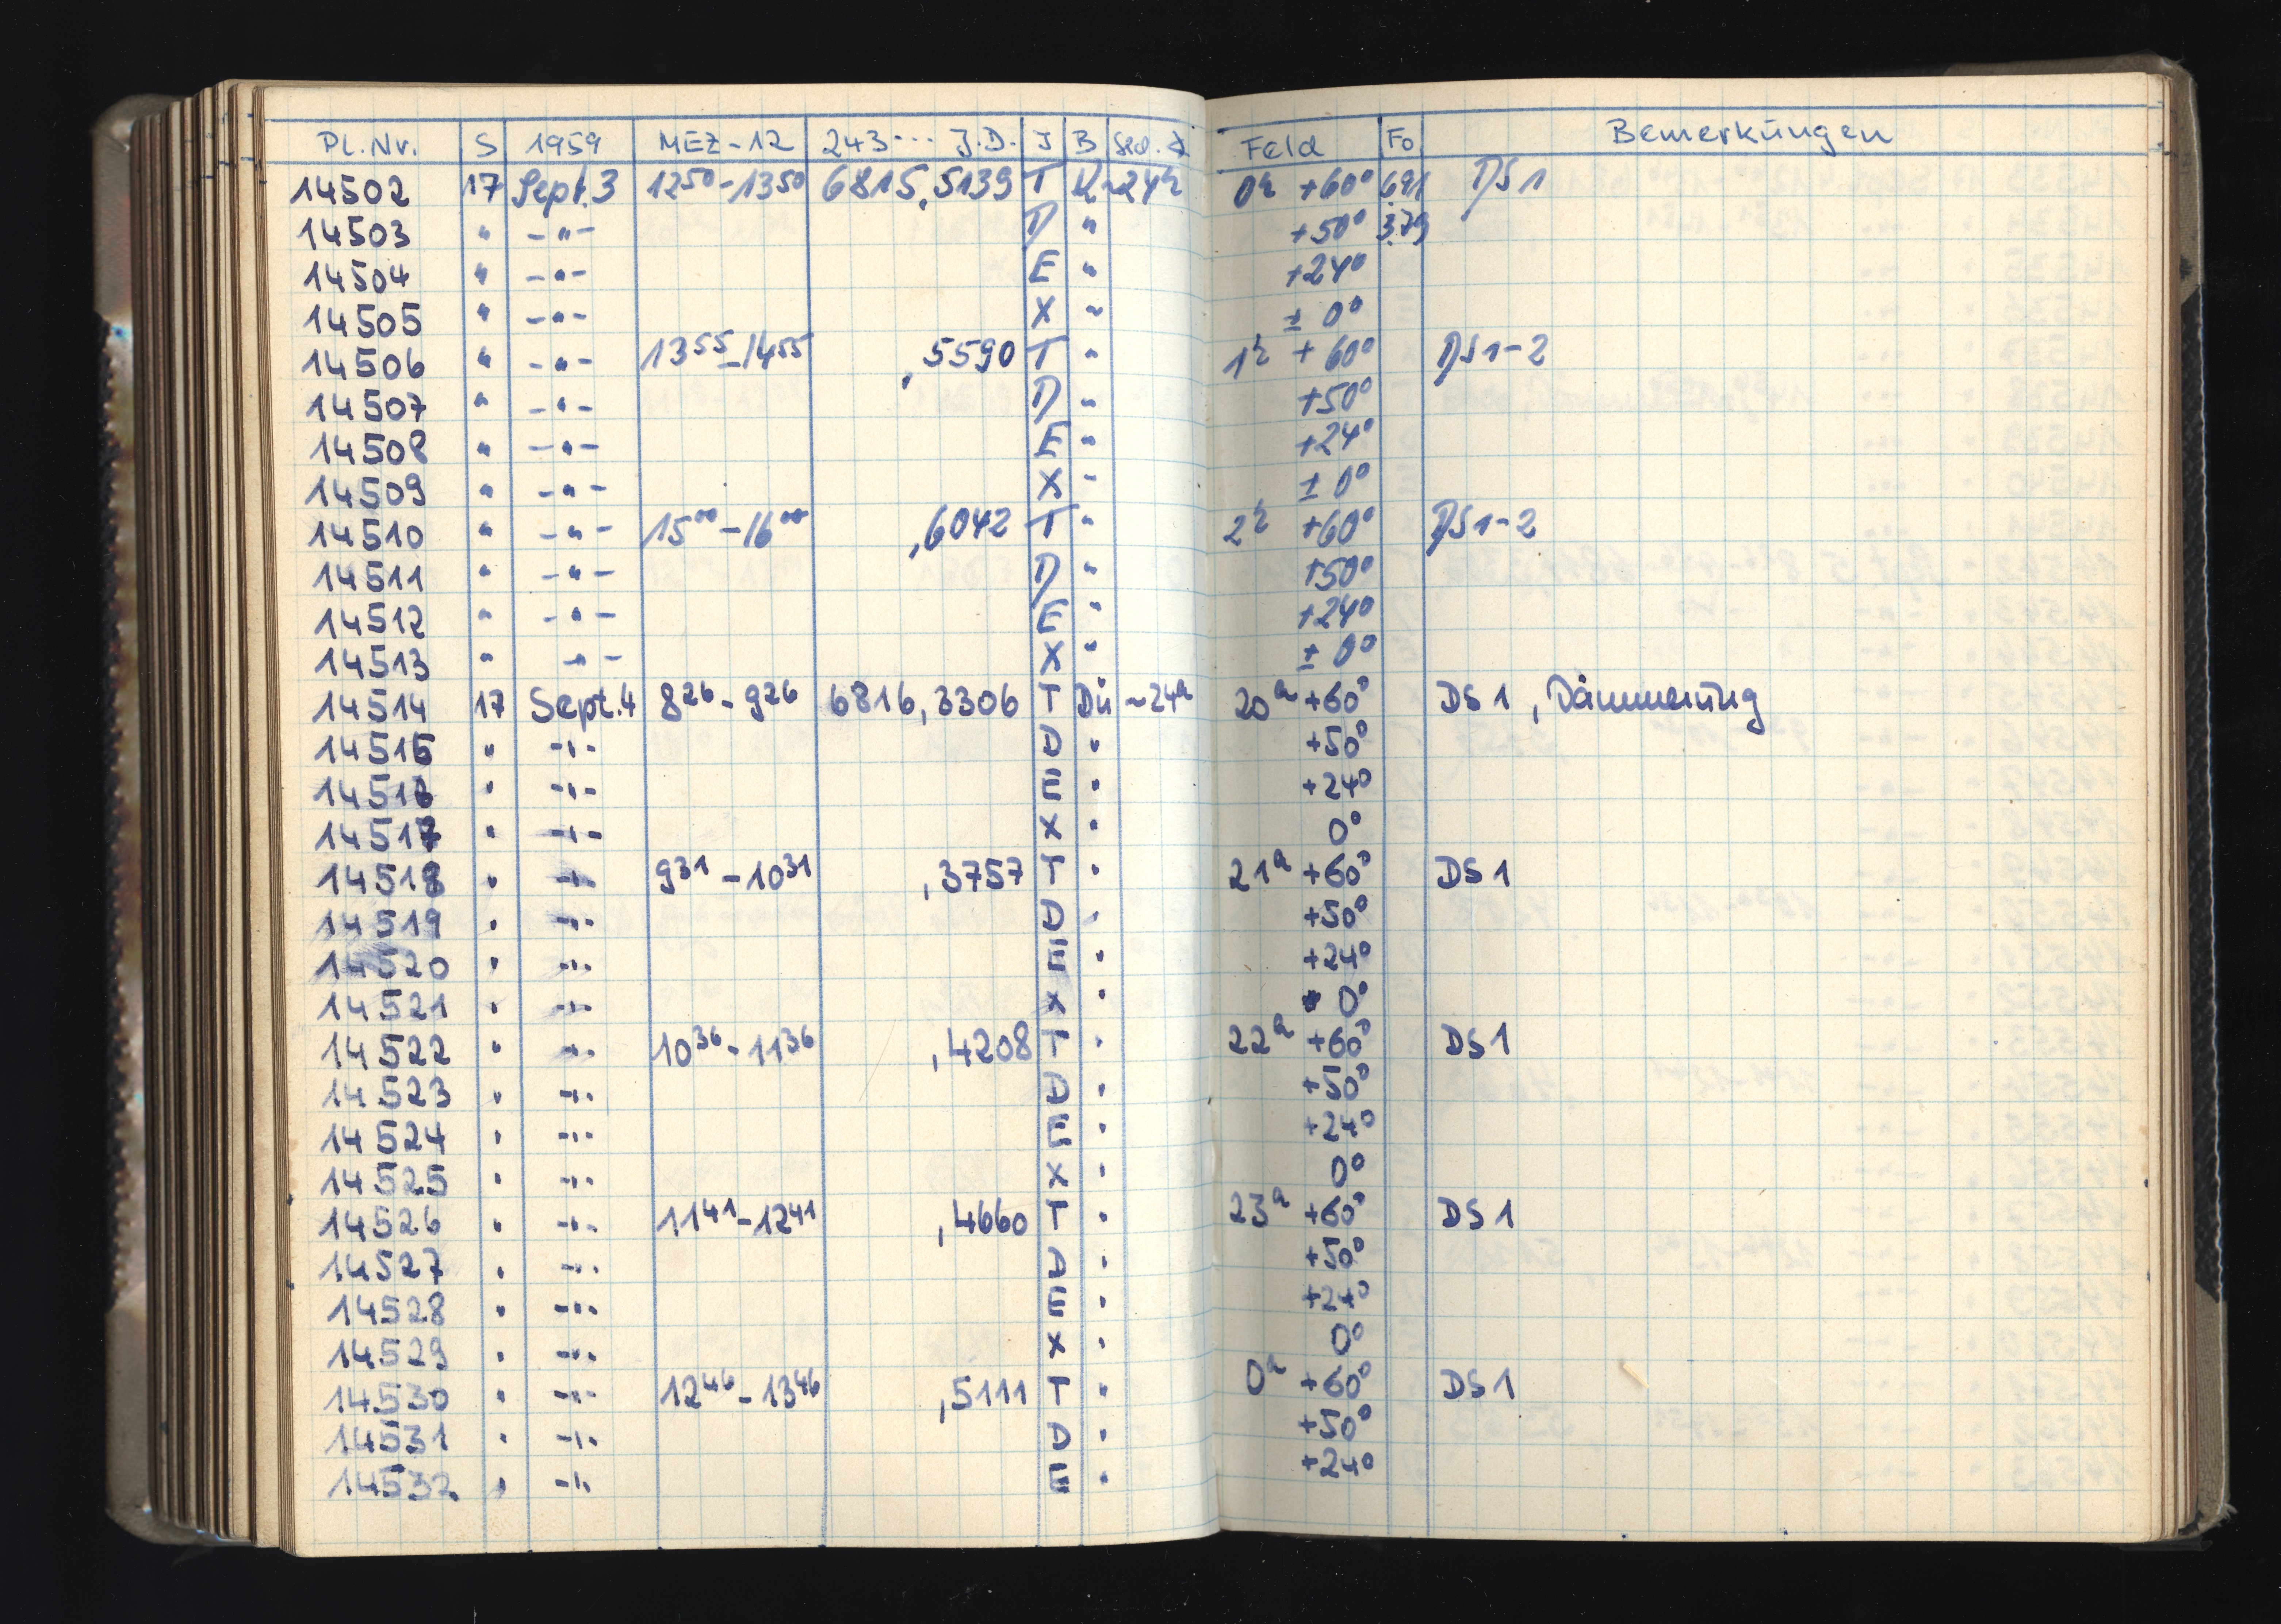 Pl.Nr. S 1959 MEZ-12 243... J.D. J B Sed. Feld Fo Bemerkungen
14502 17 Sept.3 12⁵⁰-13⁵⁰ 6815,5139 T K ~24ʰ 0ʰ +60° 6.91 DS1
14503 " -"- D " +50° 3.79
14504 " -"- E " +24°
14505 " -"- X " ± 0°
14506 " -"- 13⁵⁵-14⁵⁵ ,5590 T " 1ʰ +60° DS1-2
14507 " -"- D " +50°
14508 " -"- E " +24°
14509 " -"- X " ± 0°
14510 " -"- 15⁰⁰-16⁰⁰ ,6042 T " 2ʰ +60° DS1-2
14511 " -"- D " +50°
14512 " -"- E " +24°
14513 " -"- X " ± 0°
14514 17 Sept.4 8²⁶-9²⁶ 6816,3306 T Dü ~24ʰ 20ʰ +60° DS1, Dämmerung
14515 " -"- D " +50°
14516 " -"- E " +24°
14517 " -"- X " 0°
14518 " -"- 9³¹-10³¹ ,3757 T " 21ʰ +60° DS1
14519 " -"- D " +50°
14520 " -"- E " +24°
14521 " -"- X " 0°
14522 " -"- 10³⁶-11³⁶ ,4208 T " 22ʰ +60° DS1
14523 " -"- D " +50°
14524 " -"- E " +24°
14525 " -"- X " 0°
14526 " -"- 11⁴¹-12⁴¹ ,4660 T " 23ʰ +60° DS1
14527 " -"- D " +50°
14528 " -"- E " +24°
14529 " -"- X " 0°
14530 " -"- 12⁴⁶-13⁴⁶ ,5111 T " 0ʰ +60° DS1
14531 " -"- D " +50°
14532 " -"- E " +24°